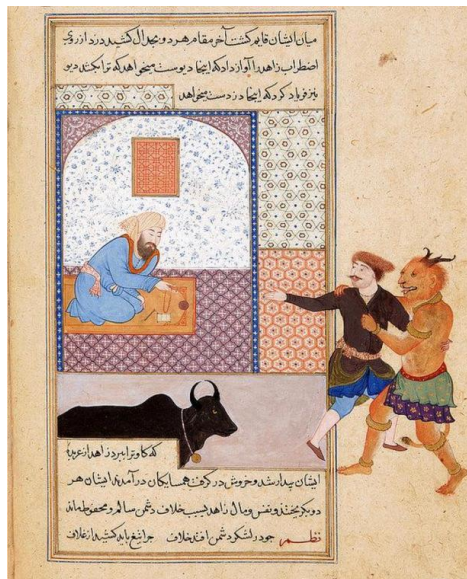 میان ایشان قایم کشت آخر مقام هر دو بجدال کشید دزد از روی
اضطراب زاهد را آواز داد که اینجا دیویست میخواهد که ترا بکشد دیو
نیز فریاد کرد که اینجا دزدست میخواهد
که کاو ترا ببرد زاهد از عربده
ایشان بیدار شد و خروش در کرفت همسایکان درآمدند ایشان هر
دو بکریختند و نفس و مال زاهد بسبب خلاف دشمن سالم و محفوظ ماند
نظم چو در لشکر دشمن افتد خلاف جرا تیغ باید کشید از غلاف